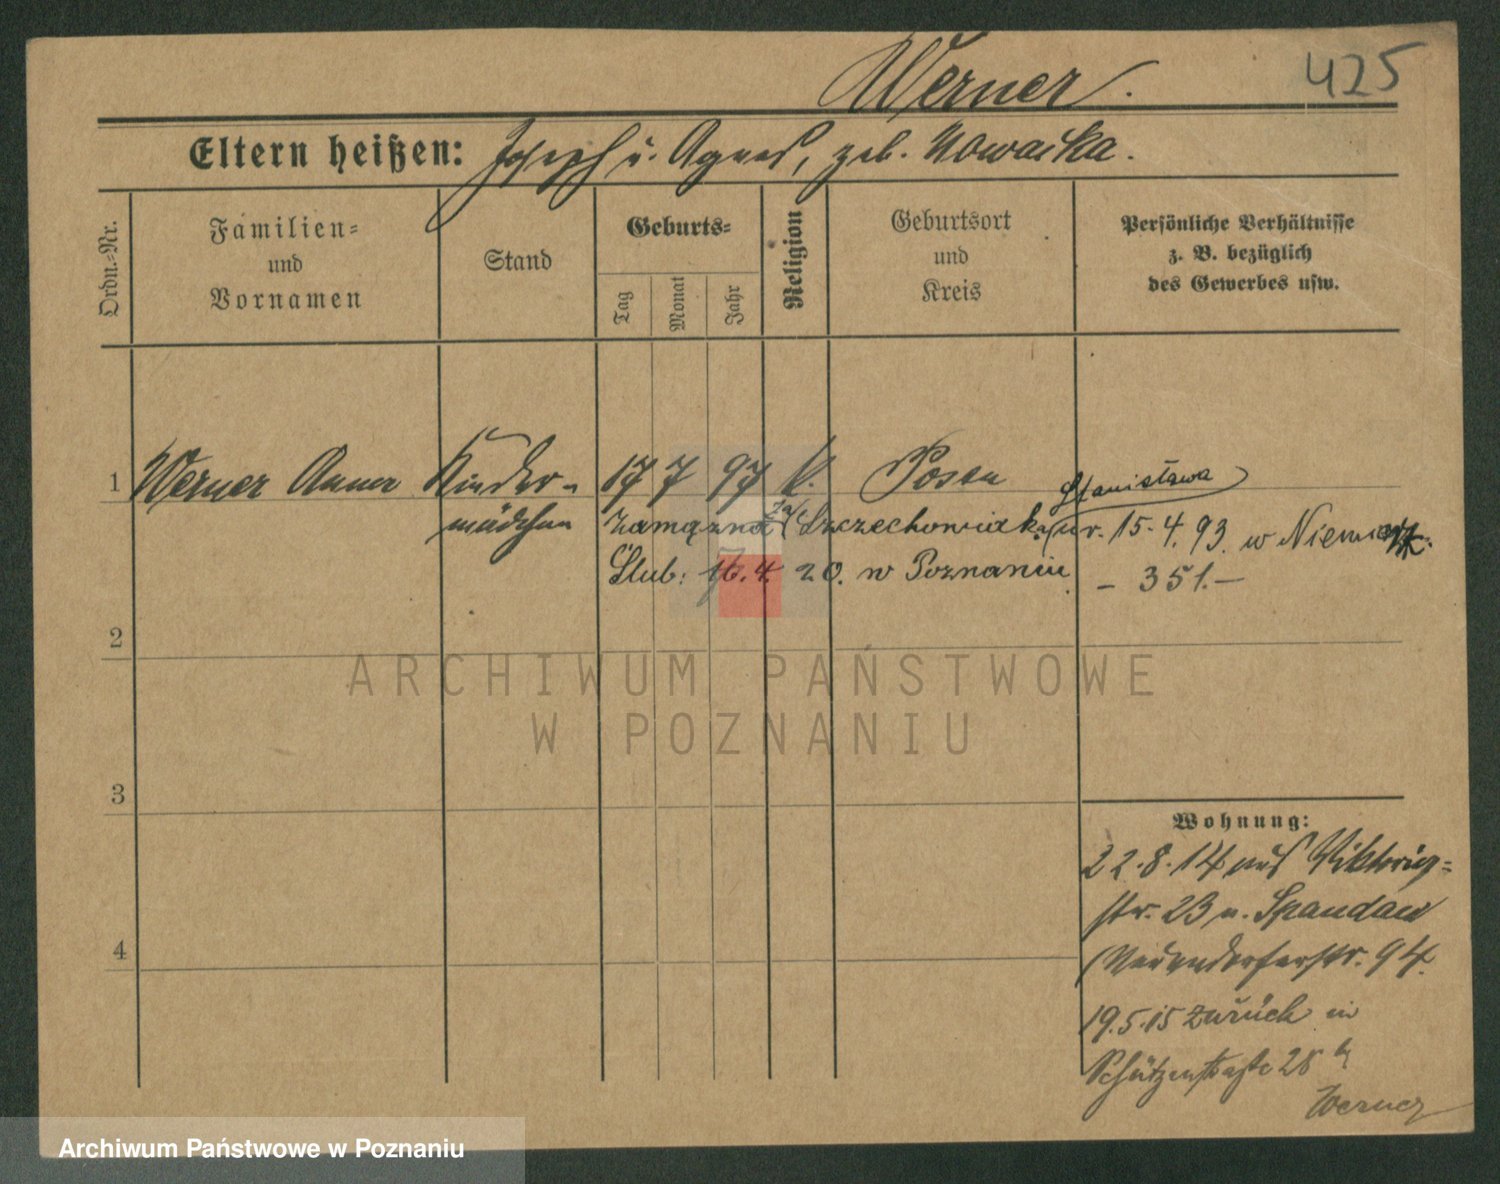 Werner.
425
Eltern heißen: Joseph u. Agnes, geb. Nowacka.
Ordn.-Nr.
Familien-
und
Vornamen
Stand
Geburts-
Tag
Monat
Jahr
Religion
Geburtsort
und
Kreis
Persönliche Verhältnisse
z. B. bezüglich
des Gewerbes usw.
1 Werner Anna Kinder- 17 7 97 k. Posen
Stanisława
mädchen zamężna za Szczechowiak ur. 15.4.93 w
Ślub: 16.4.20. w Poznaniu - 351.-
2
3
4
ARCHIWUM PAŃSTWOWE
W POZNANIU
Wohnung:
22.8.14 aus Viktoria=
str. 23 n. Spandau
Neuendorferstr. 94.
19.5.15 zurück in
Schützenstraße 28 b
Werner
Archiwum Państwowe w Poznaniu